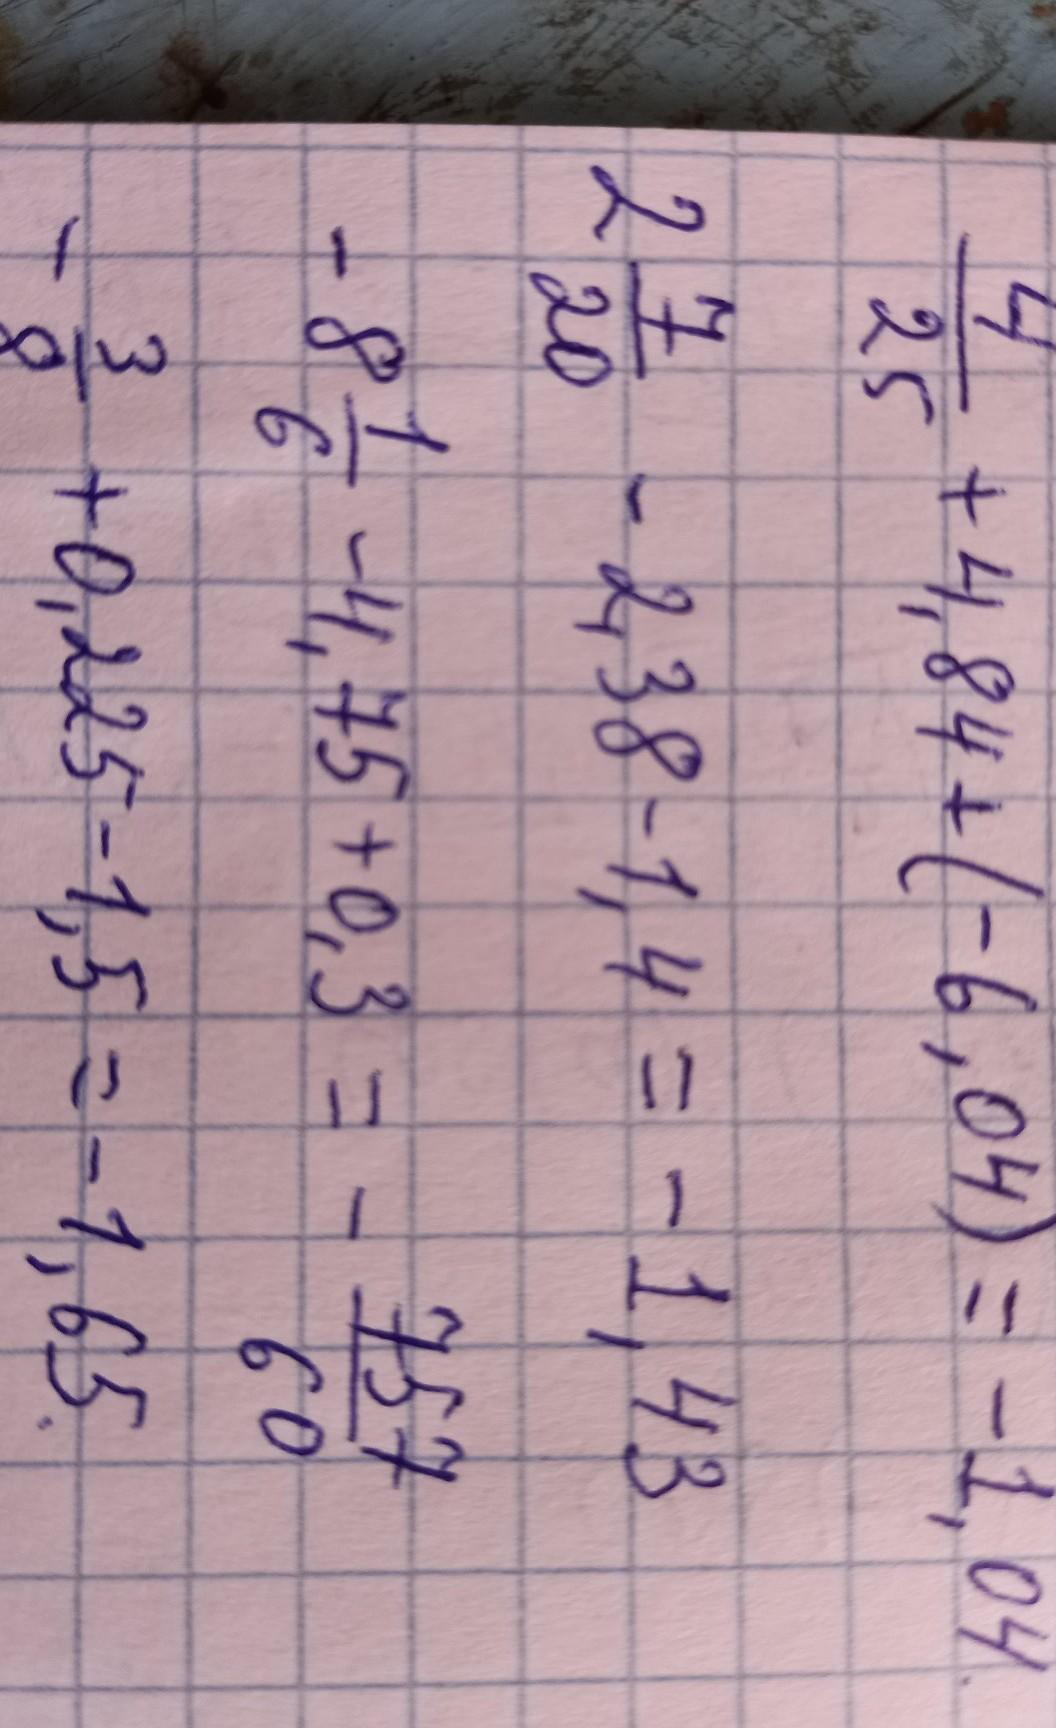 4/25 + 4,84 + (-6,04) = -1,04.
2 7/20 - 2,38 - 1,4 = -1,43
-8 1/6 - 4,75 + 0,3 = - 757/60
- 3/8 + 0,225 - 1,5 = -1,65.